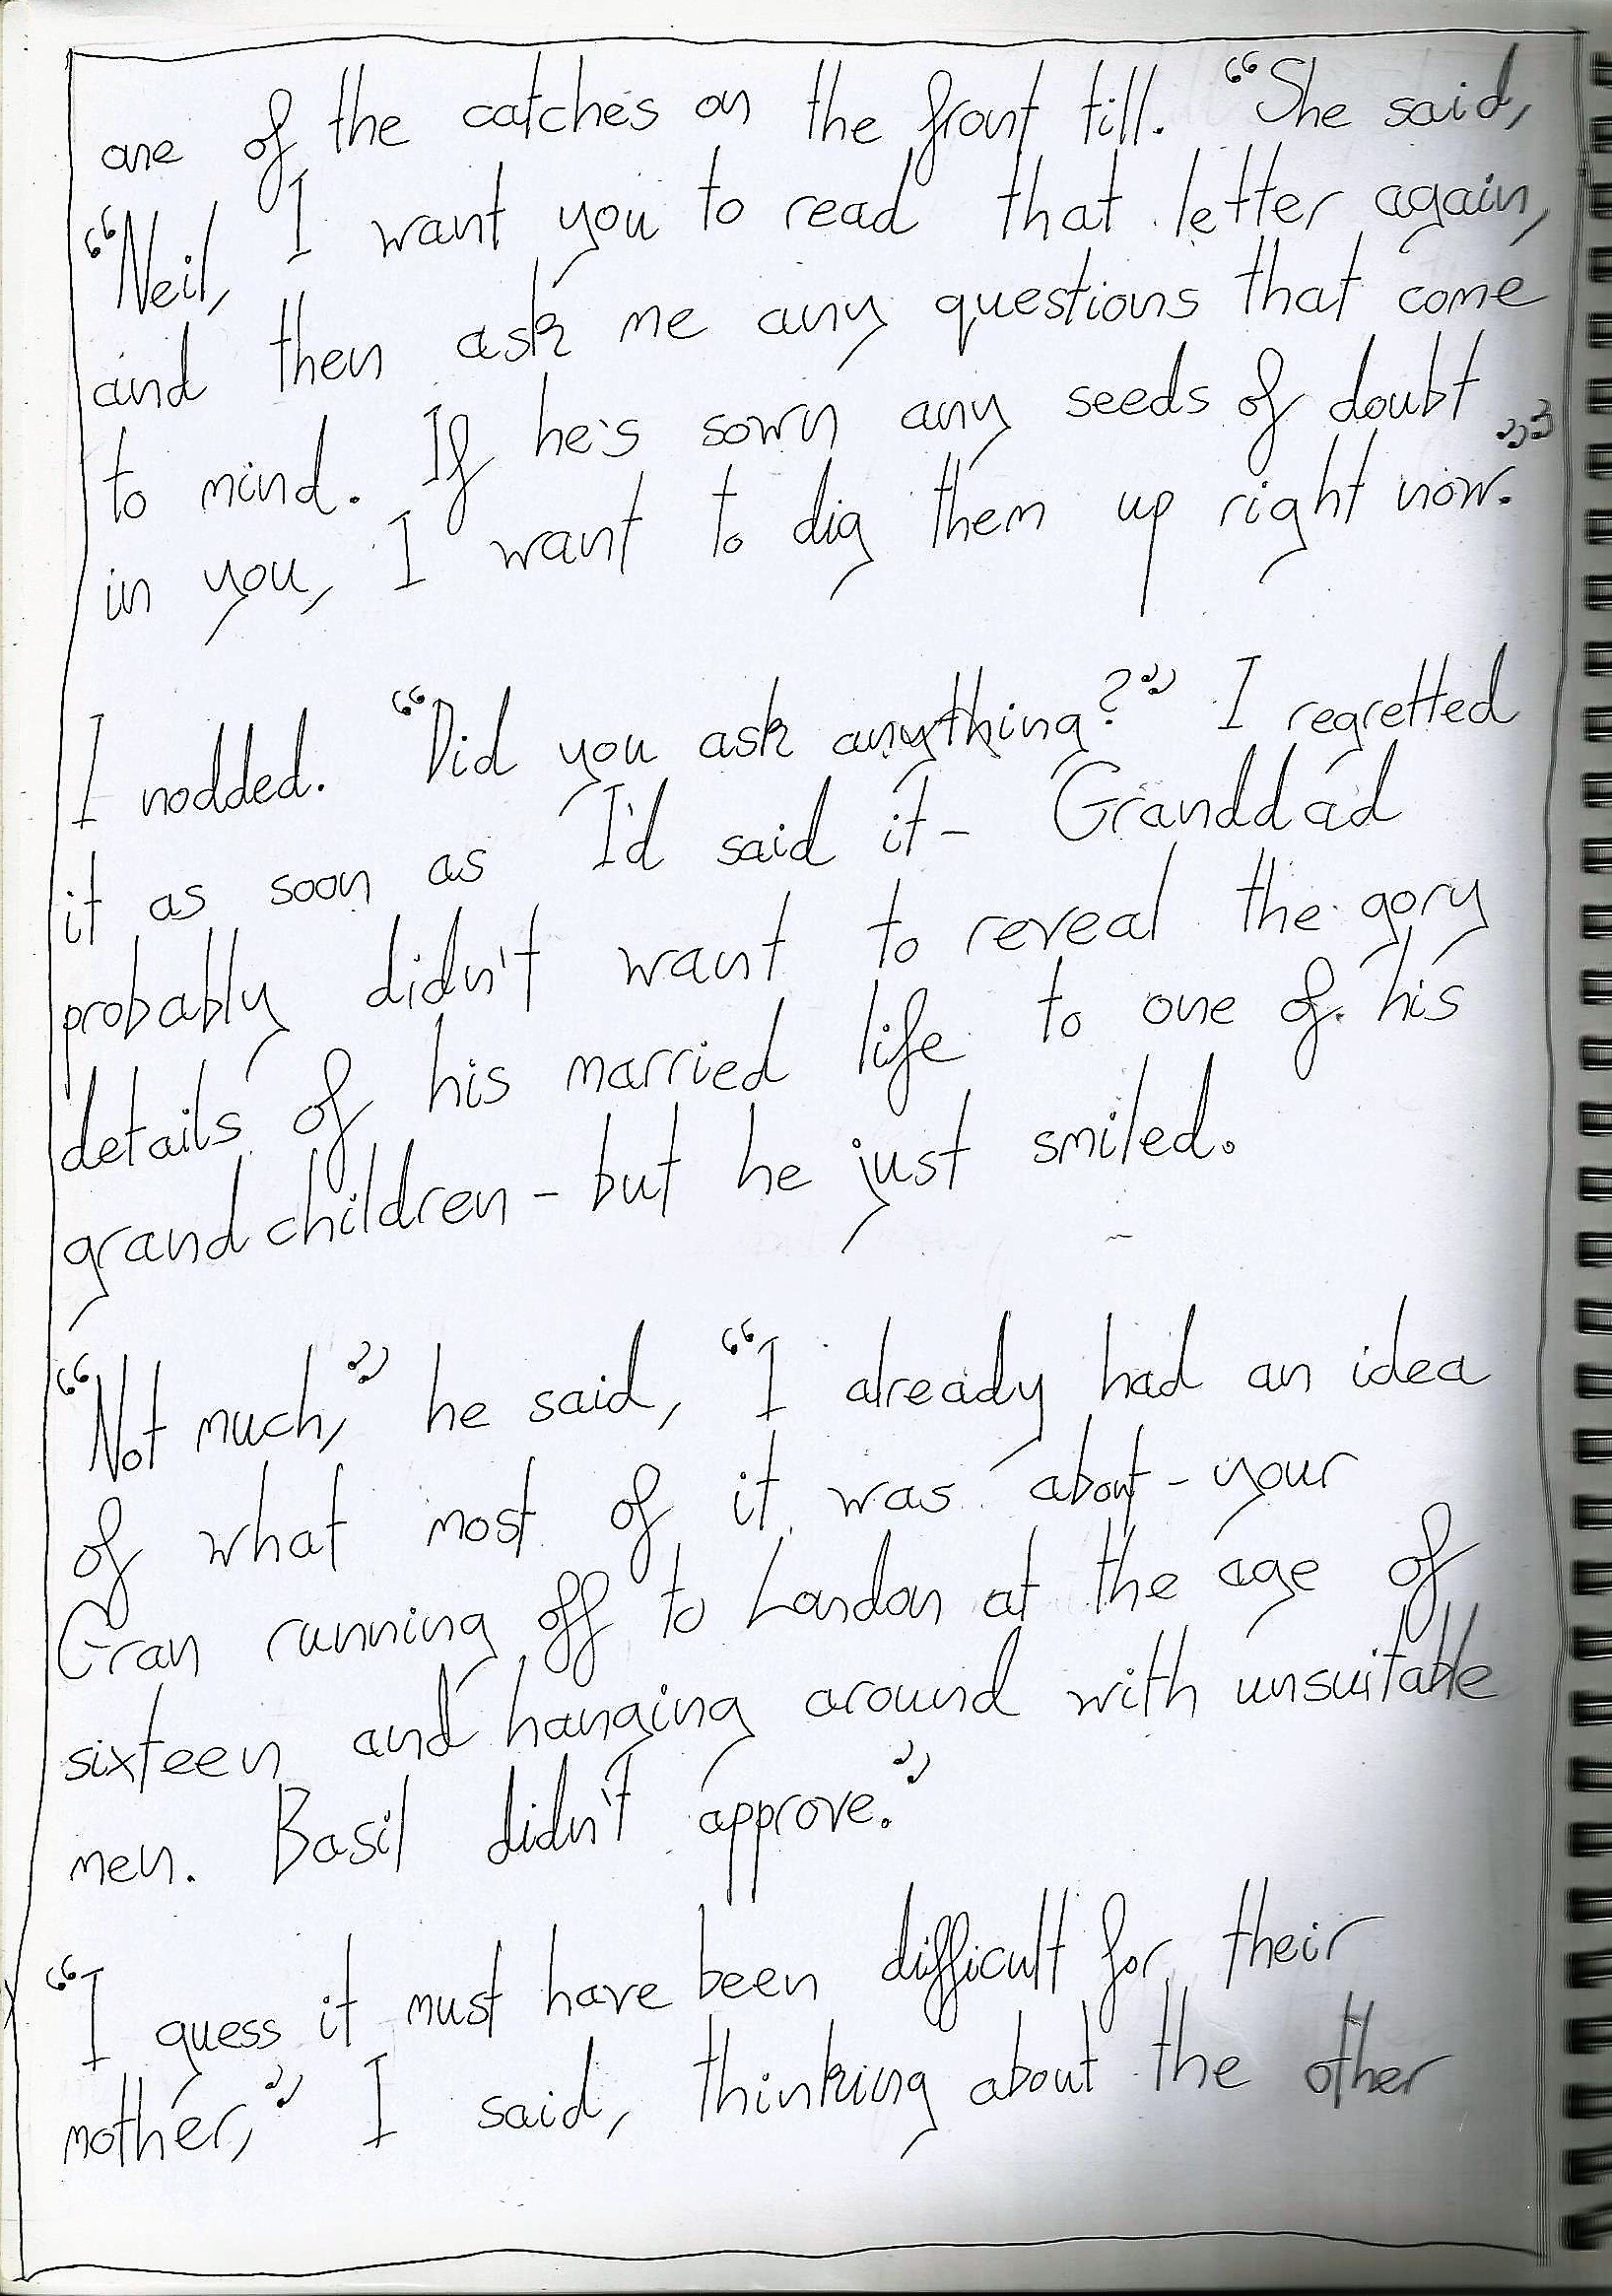 one of the catches on the front till. “She said,
“Neil, I want you to read that letter again,
and then ask me any questions that come
to mind. If he's sown any seeds of doubt
in you, I want to dig them up right now.”””
I nodded. “Did you ask anything?” I regretted
it as soon as I'd said it - Granddad
probably didn't want to reveal the gory
details of his married life to one of his
grandchildren - but he just smiled.
“Not much,” he said, “I already had an idea
of what most of it was about - your
Gran running off to London at the age of
sixteen and hanging around with unsuitable
men. Basil didn't approve.”
“I guess it must have been difficult for their
mother,” I said, thinking about the other